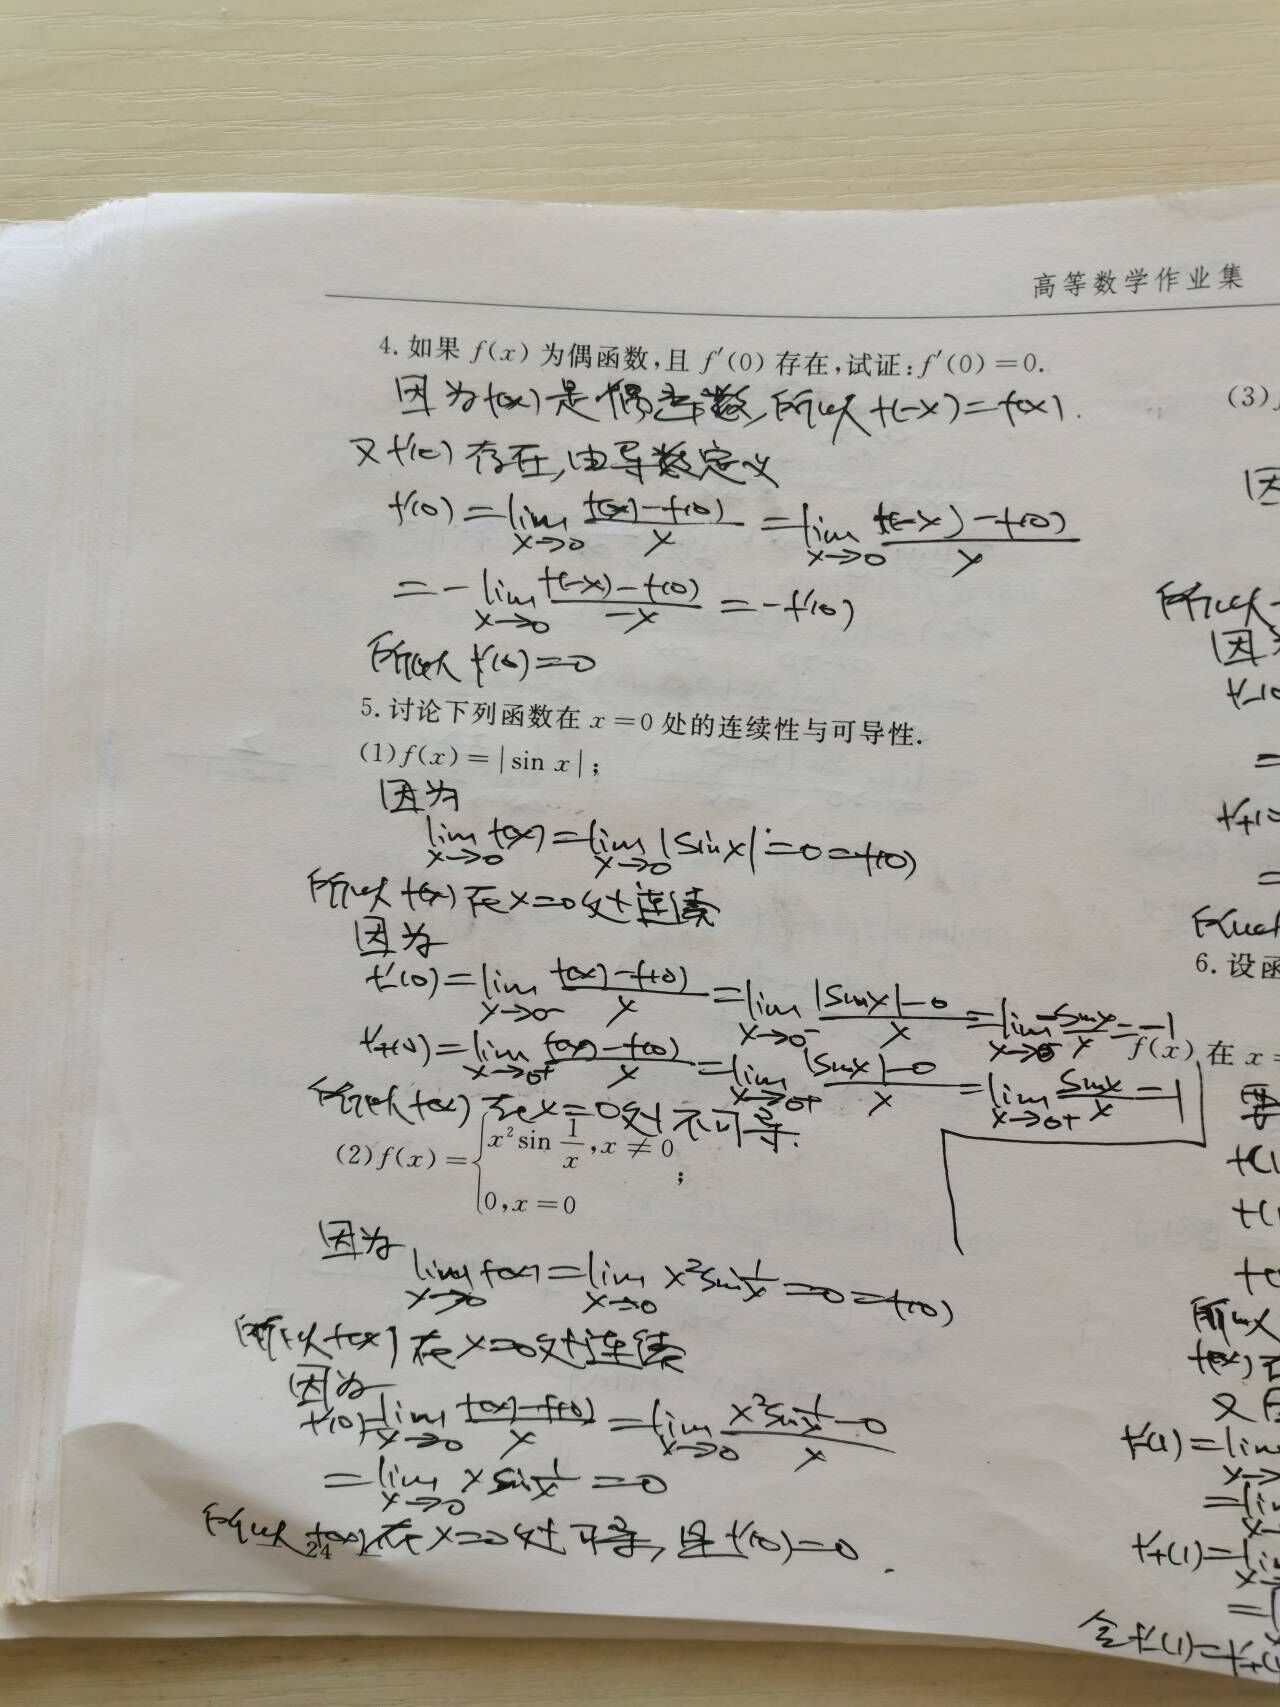 高等数学作业集
4. 如果 f(x) 为偶函数,且 f′(0) 存在,试证:f′(0)=0.
因为f(x)是偶函数,所以f(-x)=f(x).
又f'(0)存在,由导数定义
f'(0)=lim x→0 (f(x)-f(0))/x =lim x→0 (f(-x)-f(0))/x
=-lim x→0 (f(-x)-f(0))/(-x) =-f'(0)
所以f'(0)=0
5. 讨论下列函数在 x=0 处的连续性与可导性.
(1) f(x)=|sin x|;
因为
lim x→0 f(x)=lim x→0 |sinx|=0=f(0)
所以f(x)在x=0处连续
因为
f'-(0)=lim x→0- (f(x)-f(0))/x =lim x→0- (|sinx|-0)/x =lim x→0- (-sinx)/x =-1
f'+(0)=lim x→0+ (f(x)-f(0))/x =lim x→0+ (|sinx|-0)/x =lim x→0+ sinx/x =1
所以f(x)在x=0处不可导.
(2) f(x)={x² sin 1/x, x≠0
0, x=0 ;
因为
lim x→0 f(x)=lim x→0 x²sin 1/x =0=f(0)
所以f(x)在x=0处连续
因为
f'(0)=lim x→0 (f(x)-f(0))/x =lim x→0 (x²sin 1/x -0)/x
=lim x→0 x sin 1/x =0
所以f(x)在x=0处可导,且f'(0)=0.
24
(3)
因
所以
因为
=
f'+(
=
6. 设函
f(x) 在 x=
要
f(1
f(1
所以
f(x)在
又因
f'-(1)=lim
x→
=lim
f'+(1)=lim
x→
=
令f'-(1)=f'+(1)